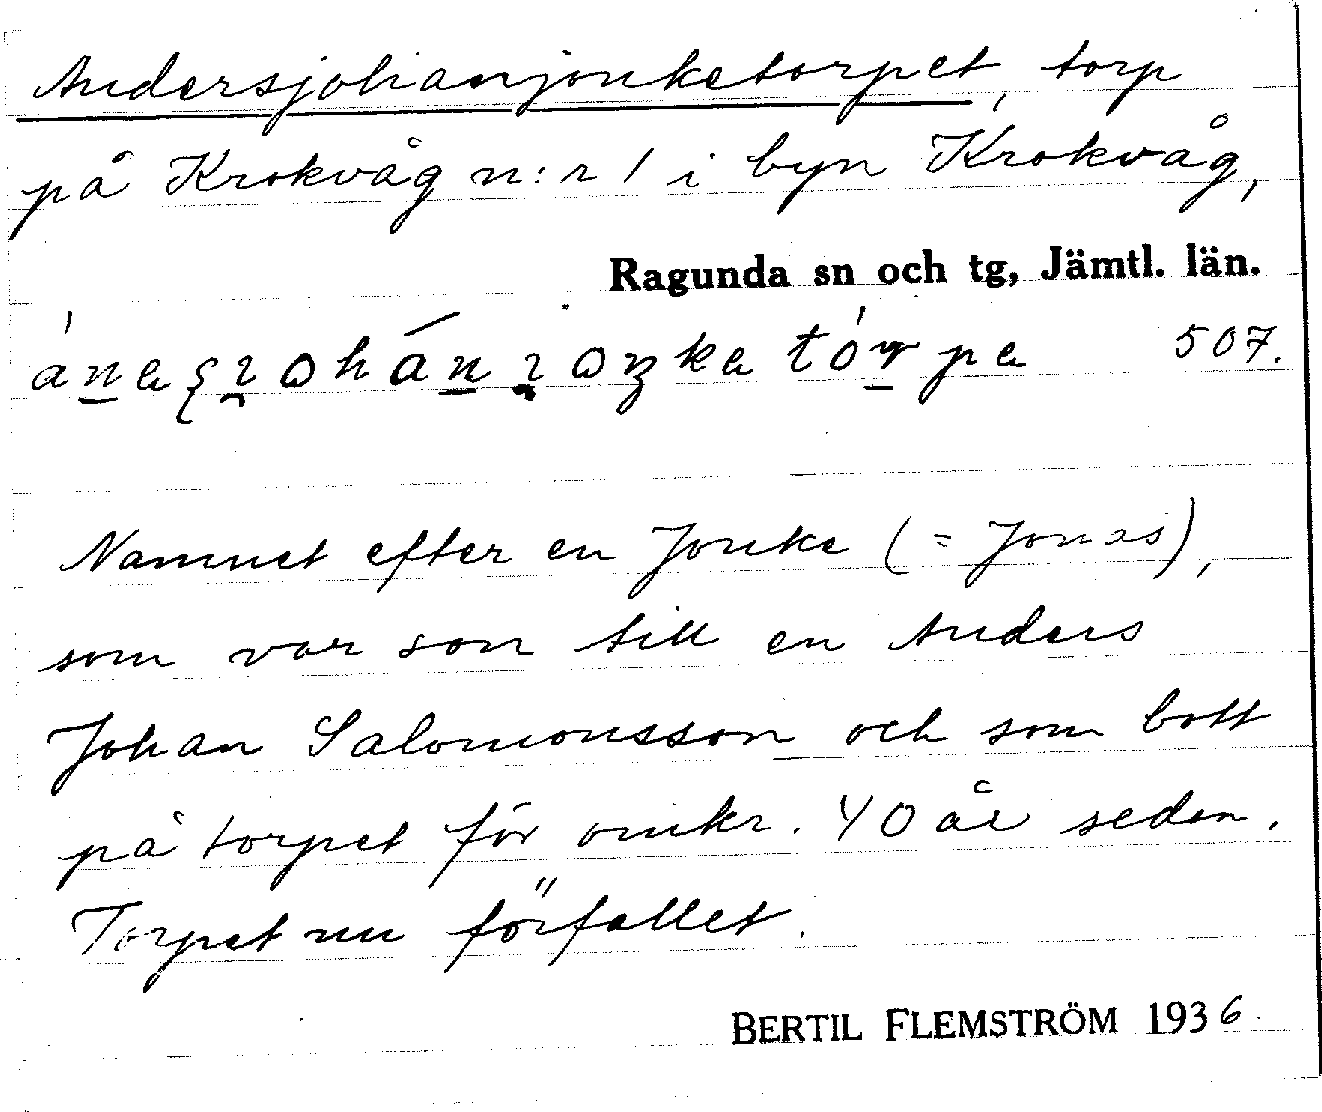 Andersjohanjonketorpet, torp
på Krokvåg n:r 1 i byn Krokvåg,
Ragunda sn och tg, Jämtl. län.
507.
Namnet efter en Jonke (= Jonas),
som var son till en Anders
Johan Salomonsson och som bott
på torpet för omkr. 40 år sedan.
Torpet nu förfallet.
BERTIL FLEMSTRÖM 1936